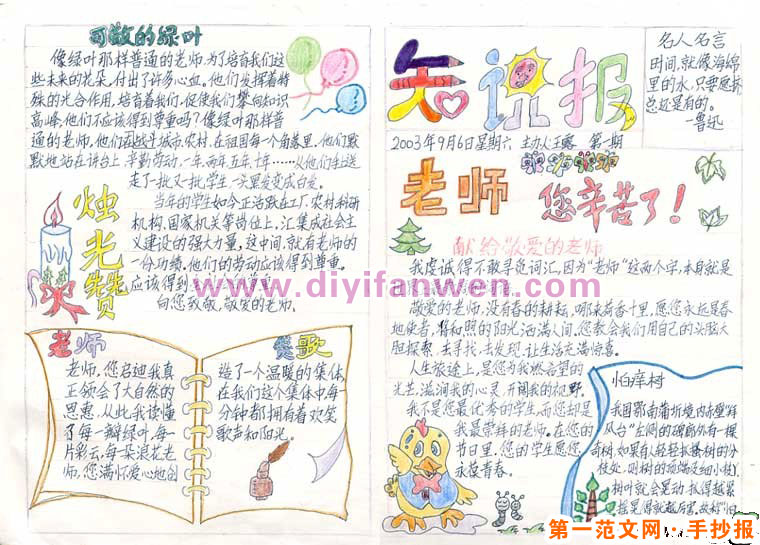 可敬的绿叶
像绿叶那样普通的老师,为了培育我们这
些未来的花朵,付出了许多心血。他们发挥着特
殊的光合作用,培育着我们,促使我们攀向知识
高峰,他们不应该得到尊重吗?像绿叶那样普
通的老师,他们在城市、农村,在祖国每一个角落里,他们默
默地站在讲台上,辛勤劳动,一年、两年、五年、十年……从他们手上送
走了一批又一批学生,一头黑发变成白发。
当年的学生如今正活跃在工厂、农村、科研
机构、国家机关等岗位上,汇集成社会主
义建设的强大力量,这中间,就有老师的
一份功绩,他们的劳动应该得到尊重。
应该得到
向您致敬,敬爱的老师。
烛光赞
老师
赞歌
老师,您启迪我真
正领会了大自然的
恩惠,从此我读懂
了每一瓣绿叶,每一
片彩云,每一朵浪花老
师,您满怀爱心地创
造了一个温暖的集体,
在我们这个集体中每
分钟都拥有着欢笑
歌声和阳光。
知识报
名人名言
时间,就像海绵
里的水,只要愿挤,
总还是有的。
—鲁迅
2003年9月6日星期六 主办人:王露 第一期
老师 您辛苦了!
献给敬爱的老师
我虔诚得不敢寻觅词汇,因为“老师”这两个字,本身就是
敬爱的老师,没有春的耕耘,哪来荷香十里,愿您永远是春
地使者,将和照的阳光洒满人间,您教会我们用自己的头脑大
胆探索,去寻找、去发现,让生活充满惊喜。
人生旅途上,是您为我燃起希望的
光芒,滋润我的心灵,开阔我的视野。
我不是最优秀的学生,而您却是
我最崇拜的老师。在您的
节日里,您的学生愿您
永葆青春。
怕痒树
我国鄂南蒲圻境内赤壁“拜
风台”左侧的碑廊外有一棵
奇树,如果有人轻轻抓搔树的分
枝处,则树的顶端及细小枝
树叶就会晃动,抓得越紧
摇晃得就越厉害。故称“怕
www.diyifanwen.com
第一范文网·手抄报